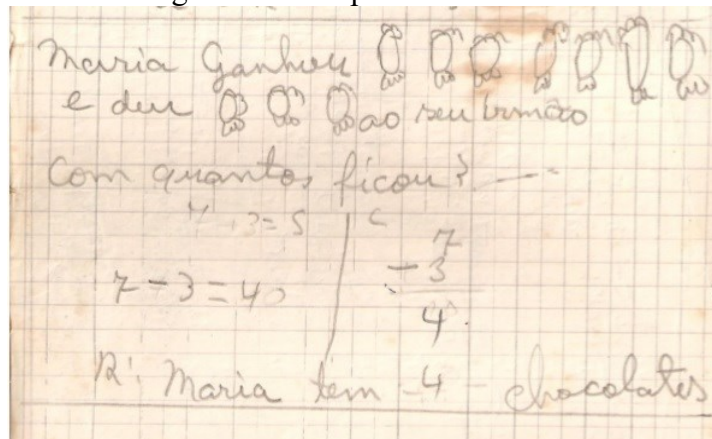 Maria Ganhou
e deu ao seu irmão
Com quantos ficou?
7 - 3 = 4
7
- 3
4
R: Maria tem 4 chocolates